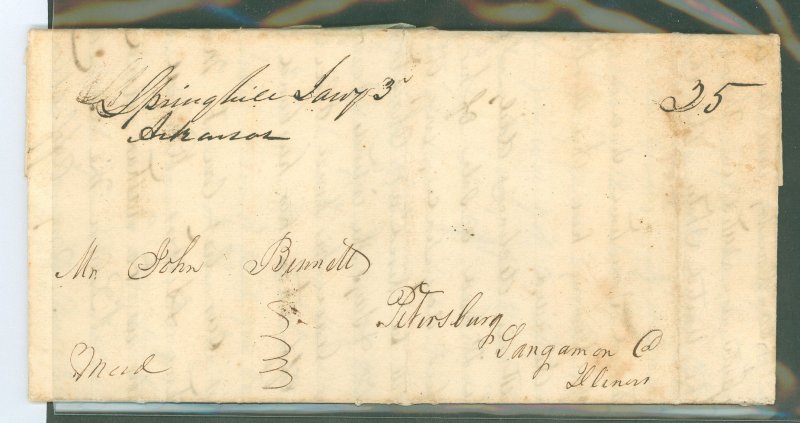 Springhill Jany 3
25
Arkansas
Mr John Bennett
Petersburg
Sangamon Co
Illinois